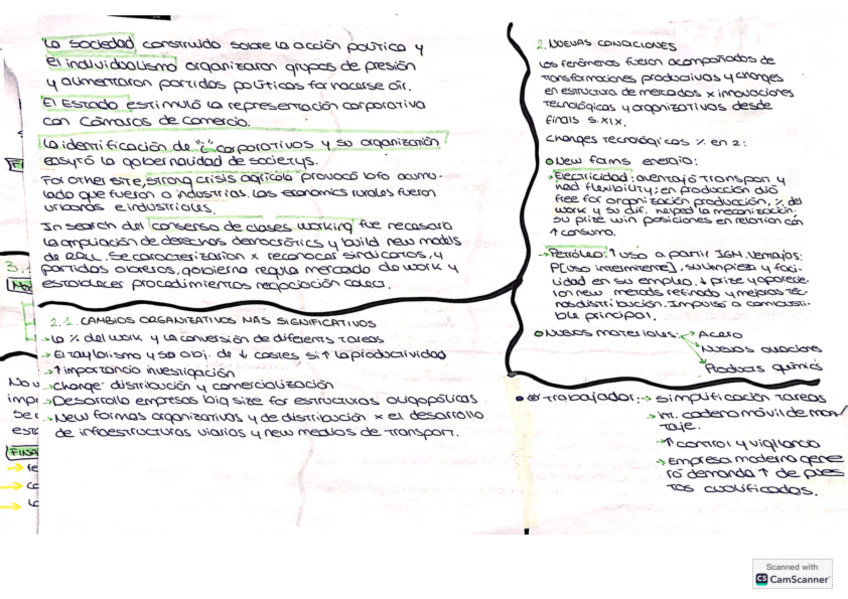 La sociedad construida sobre la acción política y
el individualismo organizaron grupos de presión
y aumentaron partidos políticos for hacerse oír.
El Estado estimuló la representación corporativa
con Cámaras de Comercio.
La identificación de "i" corporativos y su organización
easyró la gobernalidad de societys.
For other site, strong crisis agrícola provocó lofo acumu-
lado que fueron a industrias. Las economics rurales fueron
urbanas e industriales.
In search del consenso de clases working fue necesaria
la ampliación de derechos democrátics y build new models
de RRLL. Se caracterization x reconocer sindicatos, y
partidos obreros, gobierno regula mercado de work y
establecer procedimientos negociación colect.
2.1. CAMBIOS ORGANIZATIVOS MÁS SIGNIFICATIVOS
→ La % del work y la conversión de diferents tareas
→ El taylorismo y su obj. de ↓ costes si ↑ la productividad
→ ↑ importancia investigación
→ Change distribución y comercialización
→ Desarrollo empresas big size for estructuras oligopólicas
→ New formas organizativas y de distribución x el desarrollo
de infraestructuras viarias y new medios de transport.
2. NUEVAS CONDICIONES
Los fenómenos fueron acompañados de
transformaciones productivas y changes
en estructura de mercados x innovaciones
tecnológicas y organizativas desde
finals s.XIX.
Changes tecnológicos % en 2:
• New forms energía:
→ Electricidad: aventajó transport y
had flexibility; en producción dio
free for organización producción, % del
work y su dif. helped la mecanización;
su prize win posiciones en relation con
↑ consumo.
→ Petróleo: ↑ uso a partir IGM. Ventajas:
P[uso intermitente], su limpieza y faci-
lidad en su empleo. ↓ prize y aparecie-
ron new metods refinado y mejoras téc-
nicas distribución. Impulsó a combusti-
ble principal.
• Nuevos materiales: → Acero
→ Nuevas aleaciones
→ Products químics
• Trabajador: → simplificación tareas
→ int. cadena móvil de mon-
taje.
→ ↑ control y vigilancia
→ Empresa moderna gene-
ró demanda ↑ de pues-
tos cualificados.
3.
Scanned with
CS CamScanner